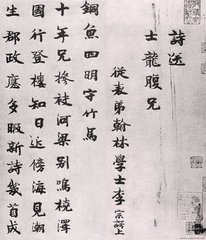 詩送
士龍兄
從表弟翰林學士李宗諤上
銅魚四明守竹馬
十年兄摻袂河梁別鳴橈澤
國行登樓知日近傍海見潮
生郡政應多暇新詩幾首成